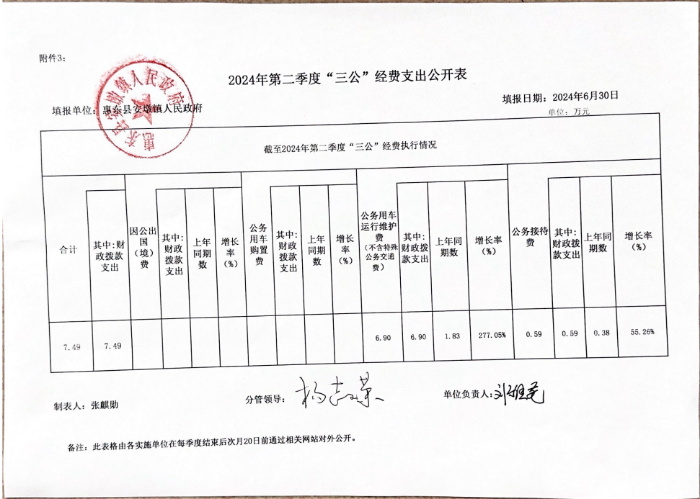 附件3：
2024年第二季度“三公”经费支出公开表
填报单位：惠东县安墩镇人民政府
填报日期：2024年6月30日
单位：万元
惠东县安墩镇人民政府
截至2024年第二季度“三公”经费执行情况
合计
其中：财政拨款支出
因公出国（境）费
其中：财政拨款支出
上年同期数
增长率（%）
公务用车购置费
其中：财政拨款支出
上年同期数
增长率（%）
公务用车运行维护费（不含特殊公务交通费）
其中：财政拨款支出
上年同期数
增长率（%）
公务接待费
其中：财政拨款支出
上年同期数
增长率（%）
7.49 7.49 6.90 6.90 1.83 277.05% 0.59 0.59 0.38 55.26%
制表人：张麒勋 分管领导： 单位负责人：
备注：此表格由各实施单位在每季度结束后次月20日前通过相关网站对外公开。